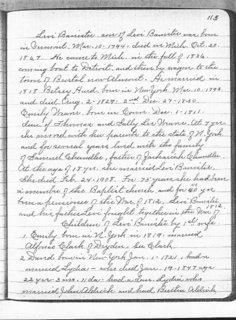 113
Levi Banister son of Levi Banister was born
in Vermont, Mar. 10. 1794. died in Mich. Oct. 20.
1867. He came to Mich. in the fall of 1836
coming boat to Detroit, and then by wagon to the
town of near Almont. He married in
1818 Betsey Hurd born in New York Mar. 10. 1793
and died Aug. 2 - 1829. 2nd Dec. 27 - 1830.
Emily born in Conn. Dec. 1. 1811.
dau. of Thomas and Sally At 7 yrs
she moved with her parents to the state of N. York
and for several years lived with the family
of Samuel Chandler, father of Zachariah Chandler
At the age of 18 yrs she married Levi Banister.
She died Feb. 24. 1908. For 75 years she had been
a member of the Baptist church and for 20 yrs
been a pensioner of the War of 1812. Levi Banister
and his father Levi fought together in the War of
Children of Levi Banister by 1st wife
1. Emily born in N. York in 1819. married
Alfonso Clark of Dryden. See Clark.
2. David born in New York Jan. 11. 1821. he
married Lydia - who died Jan. 19 - 1848 age
22 yrs. 2 mo. 11 da. had a dau. Lydia who
married John Aldrich and had Burton Aldrich